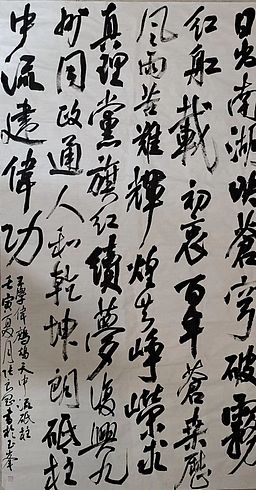 日出南湖映蒼穹破霧
红船載初衷百年蒼桑歷
風雨苦難輝煌共峥嵘求
真理黨旗红續夢復興九
州同政通人和乾坤朗砥柱
中流建偉功
王學偉鷓鴣天中流砥柱
壬寅夏月書於玉峯